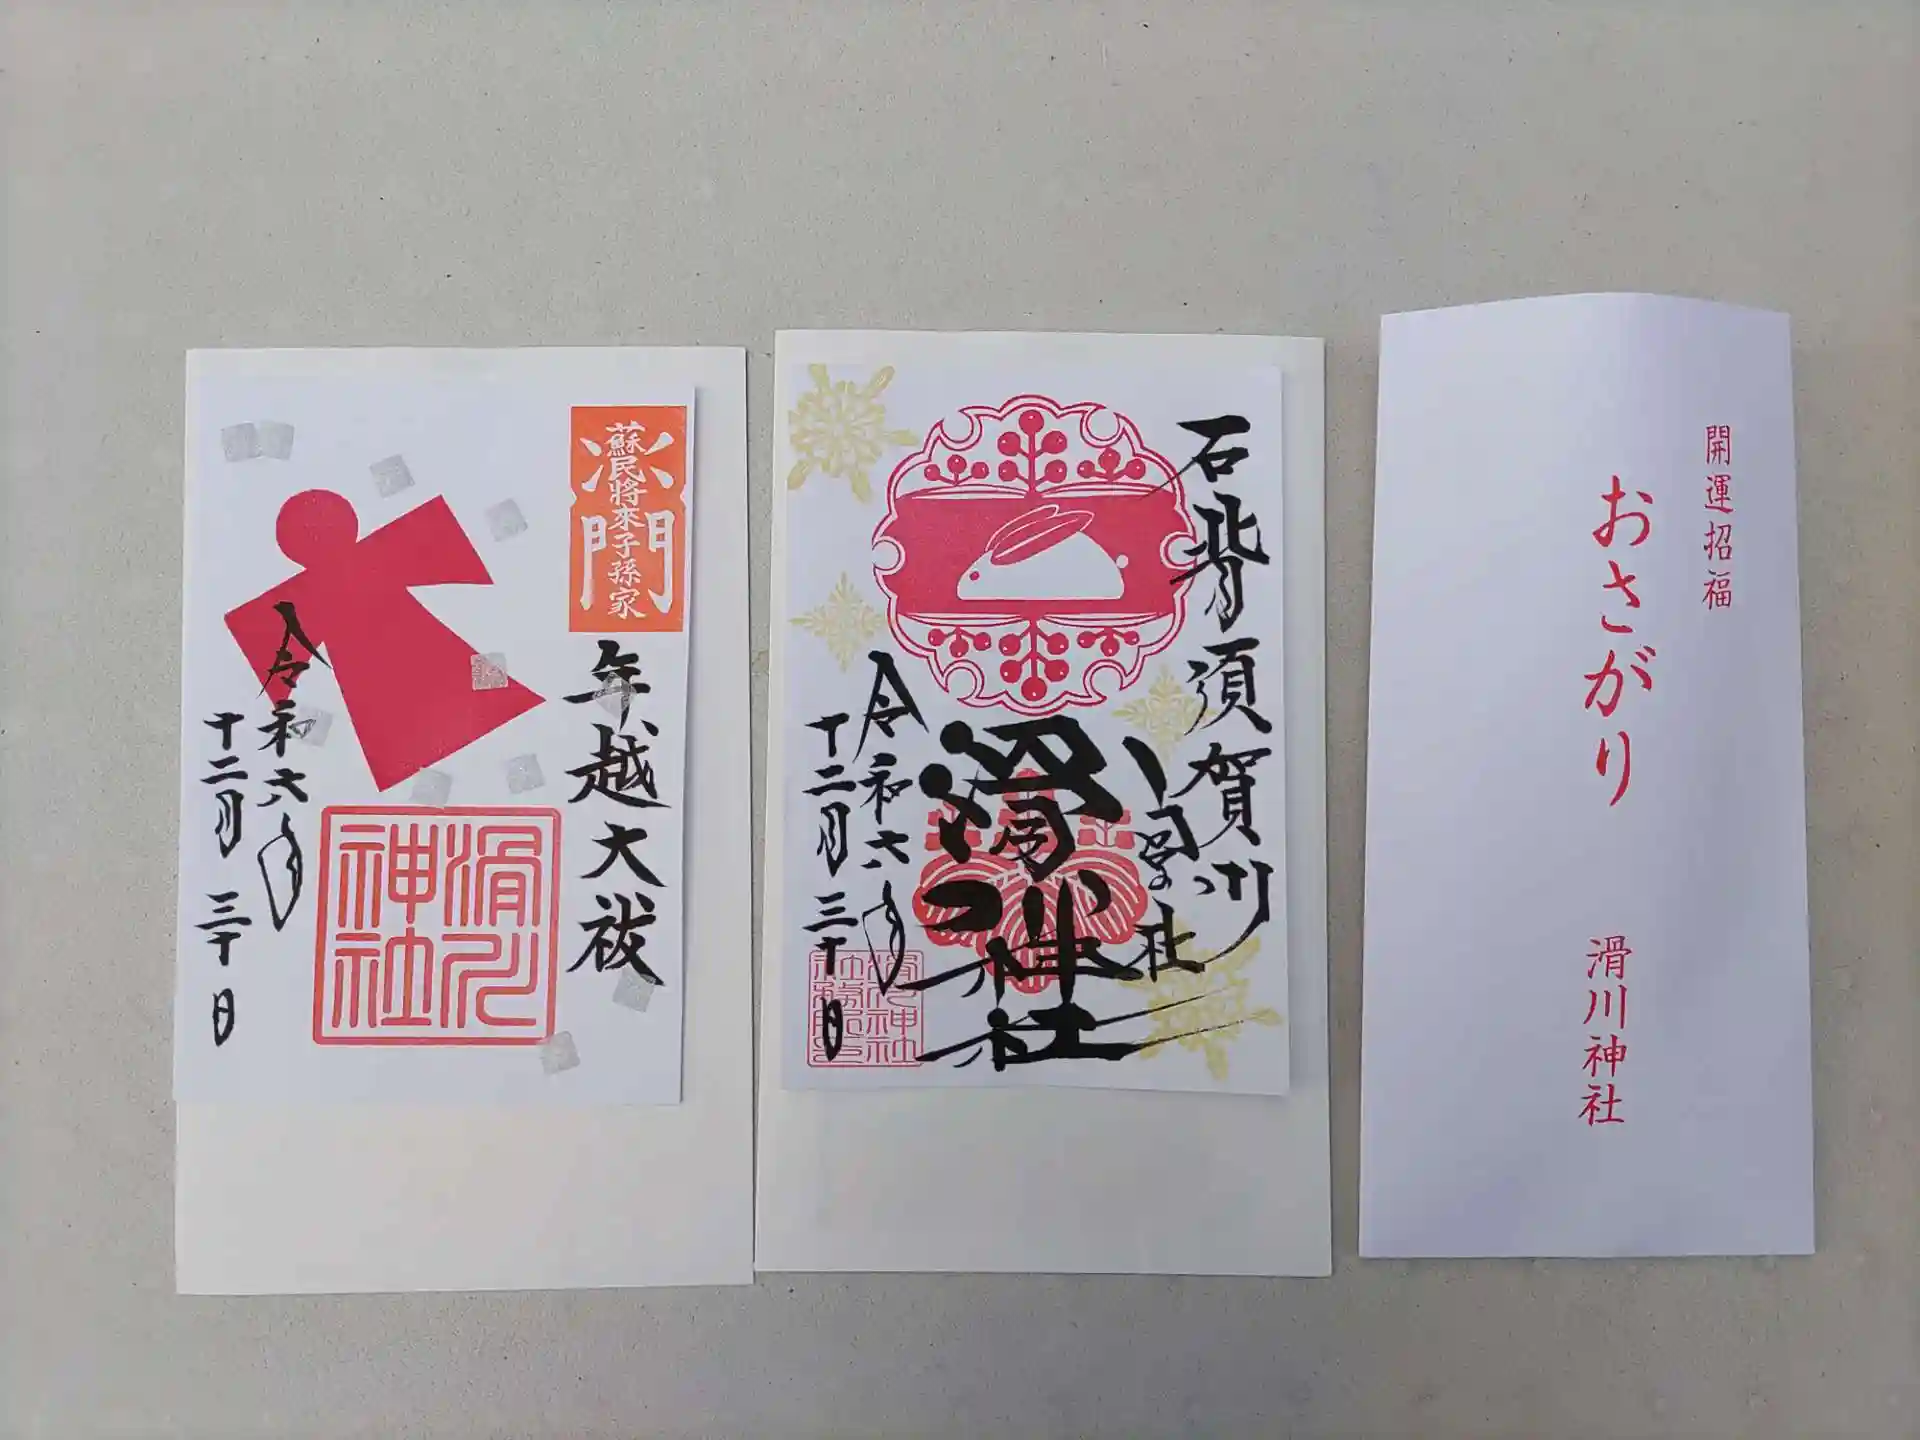 蘇民將來子孫家
門
年越大祓
令和六年
十二月三十日
滑川
神社
石背須賀川
滑川神社
令和六年
十二月三十日
開運招福
おさがり
滑川神社